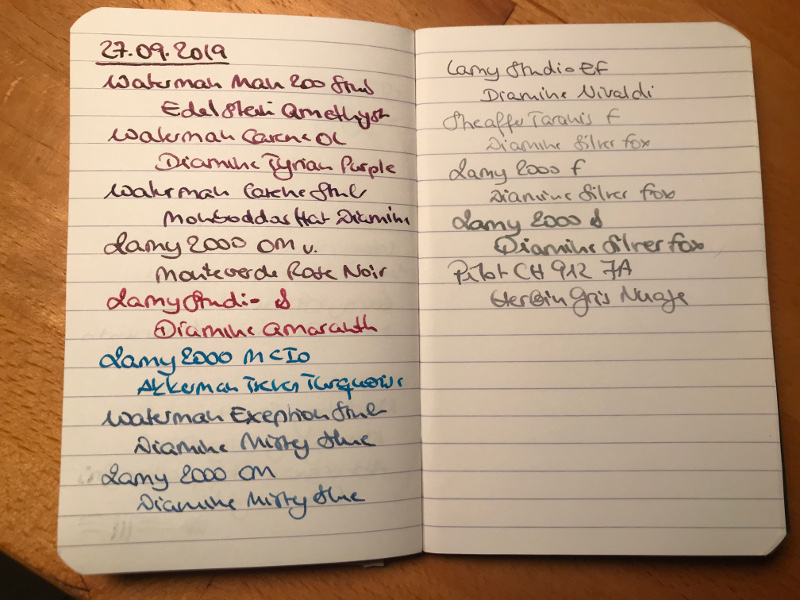 27.09.2019
Waterman Man 200 Stub
Edelstein Amethyst
Waterman Carene OL
Diamine Tyrian Purple
Waterman Carene Stub
Monboddos Hat Diamine
Lamy 2000 OM v.
Monteverde Rose Noir
Lamy Studio S
Diamine Amaranth
Lamy 2000 M CIo
Akkerman Turquoise
Waterman Exception Stub
Diamine Misty Blue
Lamy 2000 OM
Diamine Misty Blue
Lamy Studio EF
Diamine Vivaldi
Sheaffer Taranis F
Diamine Silver Fox
Lamy 2000 F
Diamine Silver Fox
Lamy 2000 S
Diamine Silver Fox
Pilot CH 912 FA
Herbin Gris Nuage